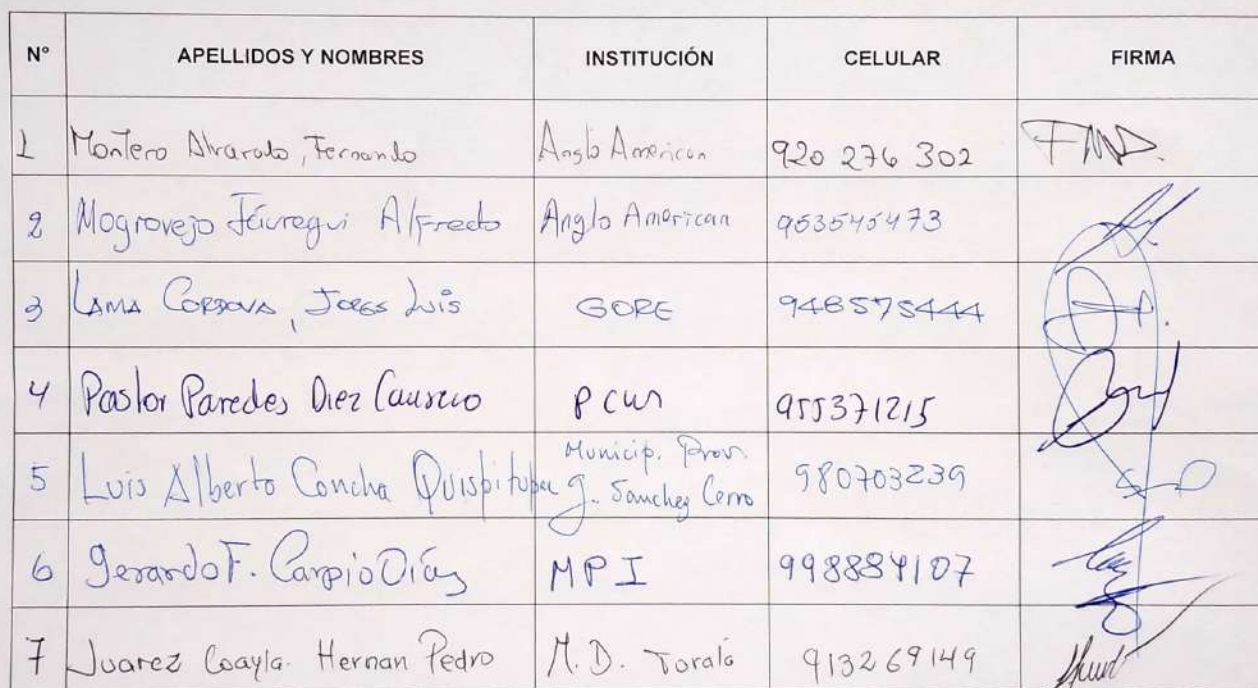 N° APELLIDOS Y NOMBRES INSTITUCIÓN CELULAR FIRMA
1 Montero Alvarado, Fernando Anglo American 920 276 302
2 Mogrovejo Jáuregui Alfredo Anglo American 953545473
3 LAMA CORDOVA, JORGE Luis GORE 948575444
4 Pastor Paredes Diez Canseco PCM 955371215
5 Luis Alberto Concha Quispitupa Municip. Prov. 980703239
G. Sanchez Cerro
6 Gerardo F. Carpio Díaz MPI 998884107
7 Juarez Coayla Hernan Pedro M. D. Torata 913269149